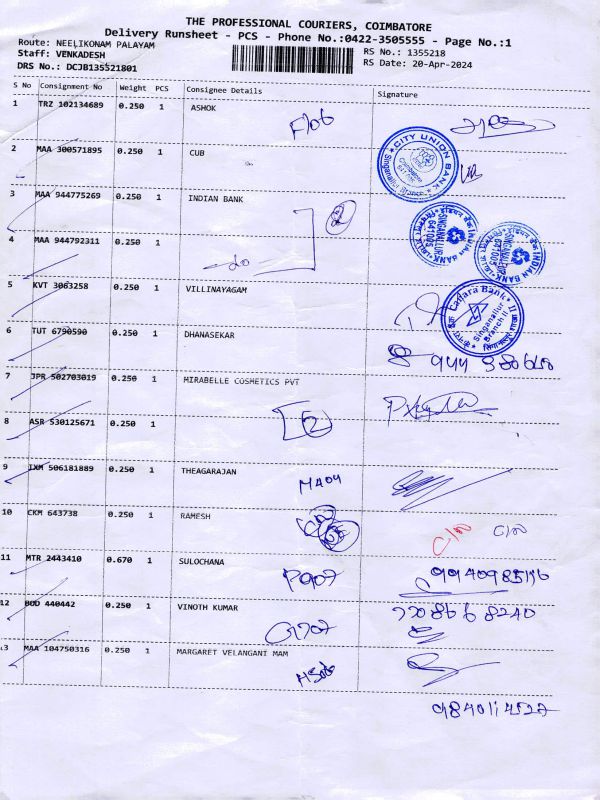 THE PROFESSIONAL COURIERS, COIMBATORE
Delivery Runsheet - PCS - Phone No.:0422-3505555 - Page No.:1
Route: NEELIKONAM PALAYAM
Staff: VENKADESH
DRS No.: DCJB135521801
RS No.: 1355218
RS Date: 20-Apr-2024
S No Consignment No Weight PCS Consignee Details Signature
1 TRZ 102134689 0.250 1 ASHOK
F106
2 MAA 300571895 0.250 1 CUB
CITY UNION BANK
3 MAA 944775269 0.250 1 INDIAN BANK
INDIAN BANK
SINGANALLUR
641005
INDIAN BANK
SINGANALLUR
641005
4 MAA 944792311 0.250 1
do
5 KVT 3063258 0.250 1 VILLINAYAGAM
Canara Bank
Singanallur
Branch II
6 TUT 6790590 0.250 1 DHANASEKAR
7 JPR 502703019 0.250 1 MIRABELLE COSMETICS PVT
8 ASR 530125671 0.250 1
2
9 IXM 506181889 0.250 1 THEAGARAJAN
M404
10 CKM 643738 0.250 1 RAMESH
11 MTR 2443410 0.670 1 SULOCHANA
P907
12 BOD 440442 0.250 1 VINOTH KUMAR
770866 8240
13 MAA 104750316 0.250 1 MARGARET VELANGANI MAM